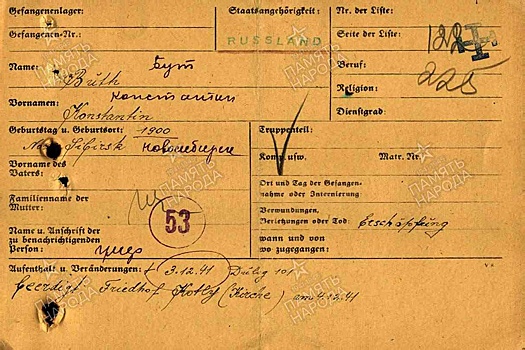 Gefangenenlager:
Staatsangehörigkeit:
Nr. der Liste:
Gefangenen-Nr.:
RUSSLAND
Seite der Liste:
Name: Бут
Buth
Beruf:
225
Religion:
Vornamen: Константин
Konstantin
Dienstgrad:
Geburtstag u. Geburtsort: 1900
Sibirsk Новосибирск
Truppenteil:
Komp. usw.
Matr. Nr.
Vorname des
Vaters:
Ort und Tag der Gefangen-
nahme oder Internierung:
Familienname der
Mutter:
53
Verwundungen,
Verletzungen oder Tod: Erschöpfung
Name u. Anschrift der
zu benachrichtigenden
Person: умер
wann und von
wo zugegangen:
Aufenthalt u. Veränderungen: + 3.12.41 Dulag 101
beerdigt Friedhof Kotly (Kirche) am 4.12.41
ПАМЯТЬ НАРОДА